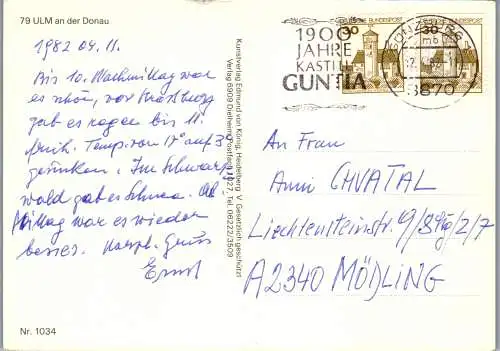 79 ULM an der Donau
1982 04. 11.
Bis 10. Nachmittag war
es schön, vor Strassburg
gab es regen bis 11.
früh. Temp. von 17° auf 3°
gesunken. Im Schwarz-
wald gab es Schnee. Ab
Mittag war es wieder
besser. Herzl. Gruss
Ernst
Nr. 1034
Kunstverlag Edmund von König, Heidelberg V. Gesetzlich geschützt
Verlag 6909 Dielheim, Postfach 1027, Tel. 06222/3509
1900
JAHRE
KASTELL
GUNTIA
30
DEUTSCHE BUNDESPOST
30
BUNDESPOST
GÜNZBURG
8870
An Frau
Anni CHVATAL
Liechtensteinstr.
A2340 MÖDLING